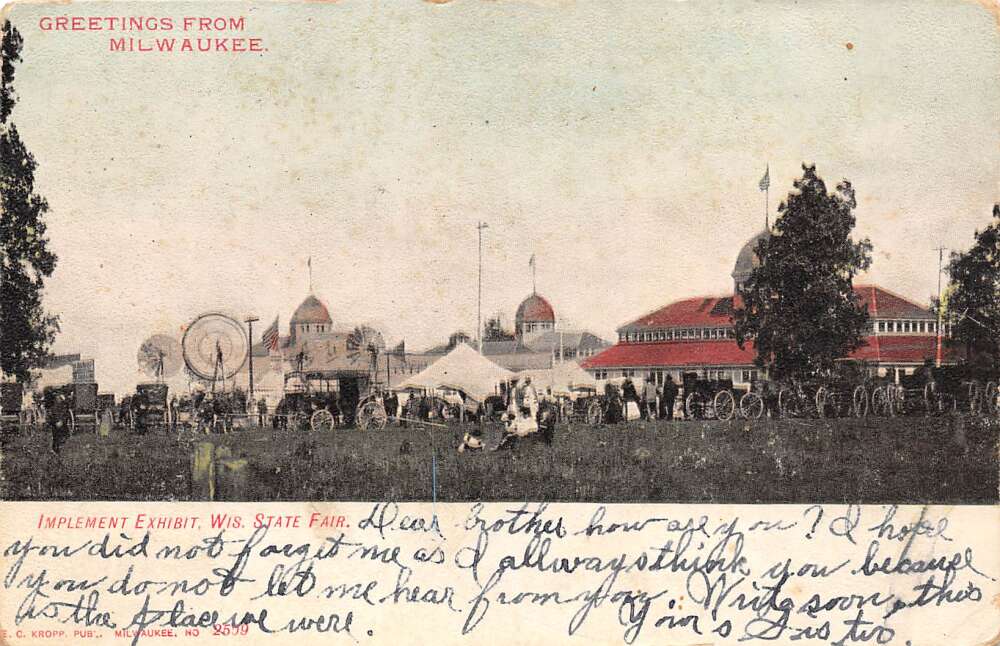 GREETINGS FROM
MILWAUKEE.
IMPLEMENT EXHIBIT, WIS. STATE FAIR.
Dear brother how are you? I hope
you did not forget me as I allways think you because
you do not let me hear from you. Write soon, this
is the place we were. Your's Sis
E. C. KROPP. PUB., MILWAUKEE. NO 2559